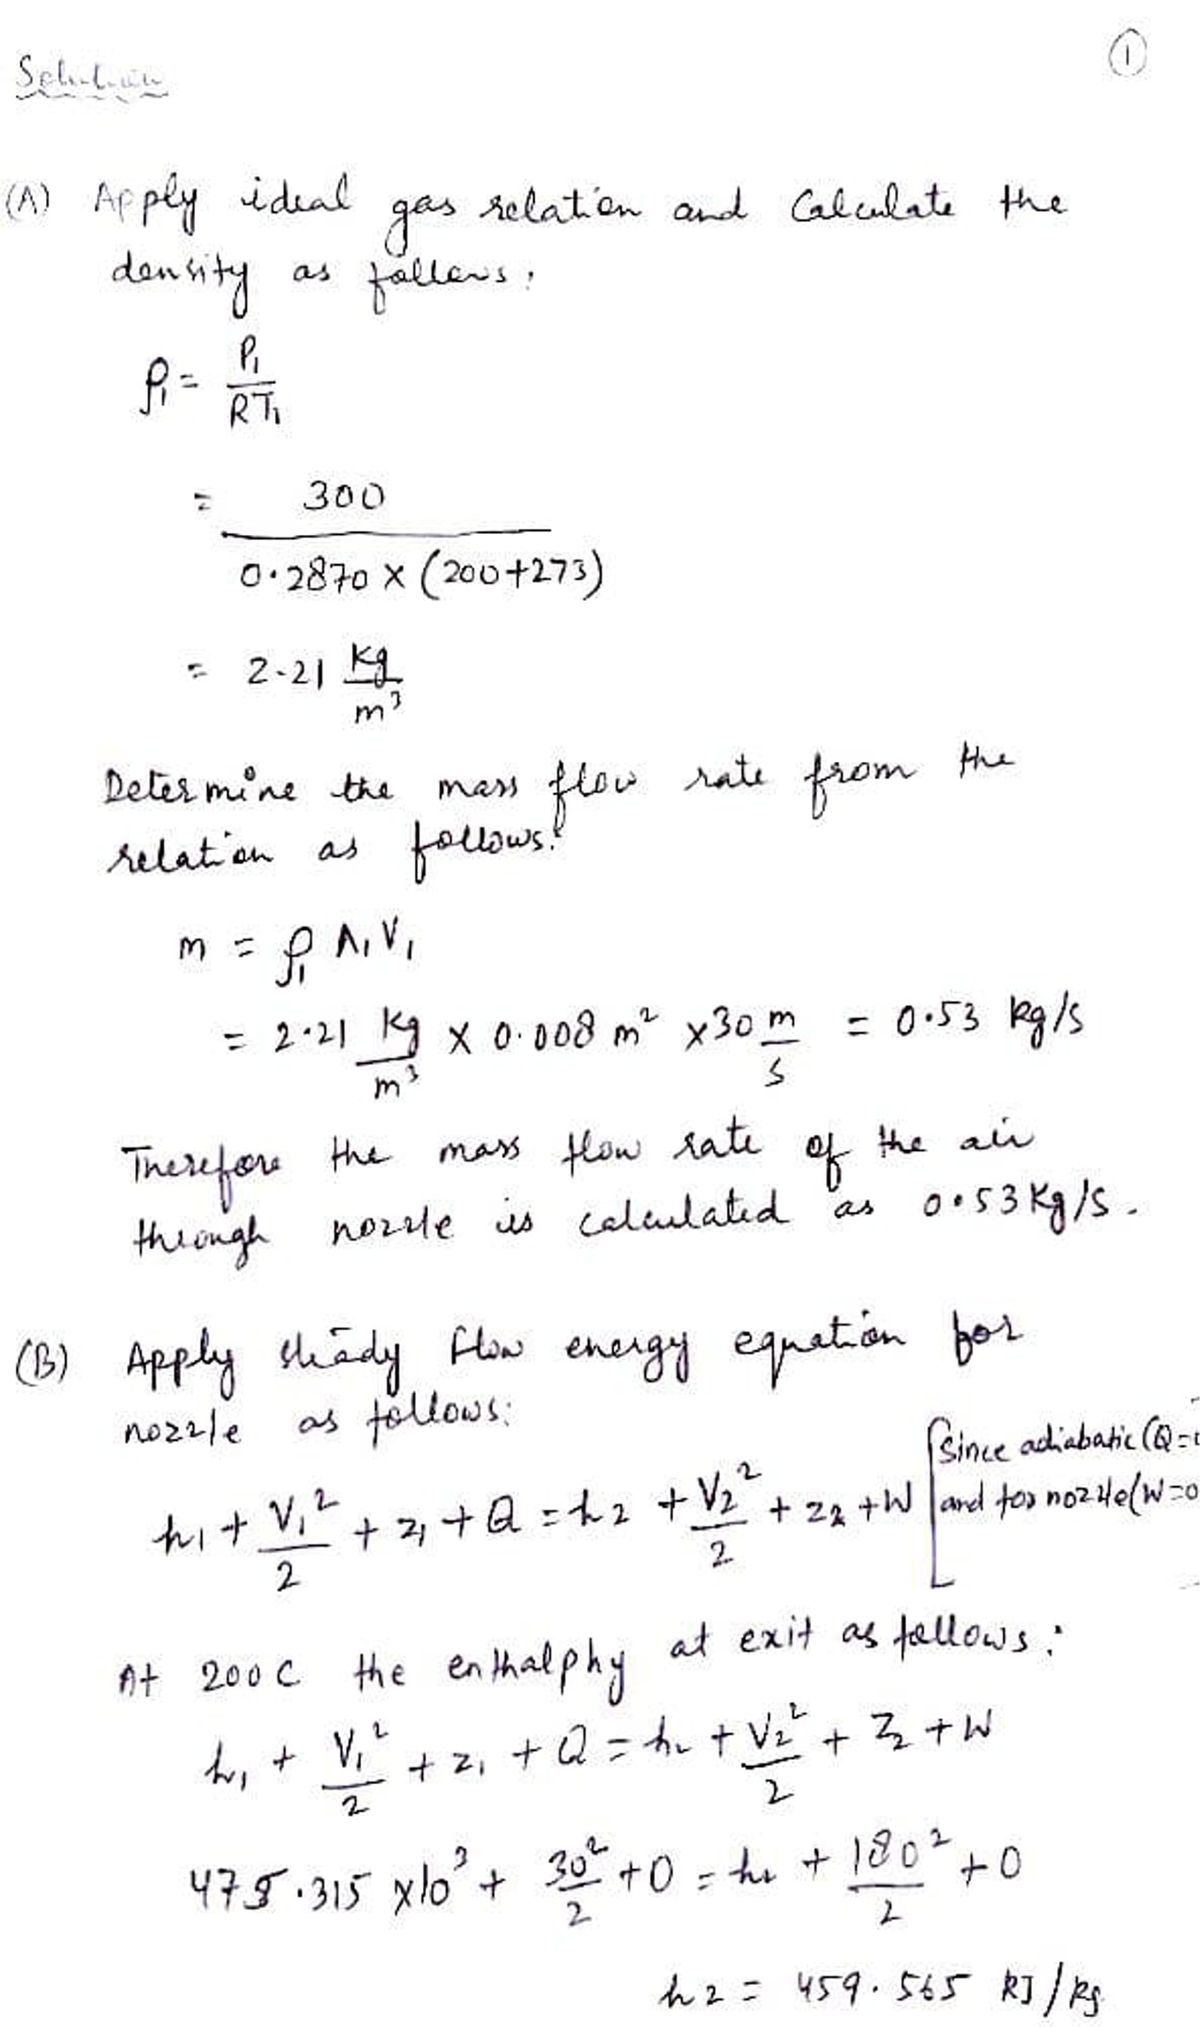 ①
Solution
(A) Apply ideal gas relation and Calculate the
density as follows:
ρ₁ = P₁/RT₁
= 300/0.2870 × (200+273)
= 2.21 kg/m³
Determine the mass flow rate from the
relation as follows:
m = ρ₁ A₁ V₁
= 2.21 kg/m³ × 0.008 m² × 30 m/s = 0.53 kg/s
Therefore the mass flow rate of the air
through nozzle is calculated as 0.53 kg/s.
(B) Apply steady flow energy equation for
nozzle as follows:
[Since adiabatic (Q=
and for nozzle (W=0
h₁ + V₁²/2 + z₁ + Q = h₂ + V₂²/2 + z₂ + W
At 200 C the enthalphy at exit as follows:
h₁ + V₁²/2 + z₁ + Q = h₂ + V₂²/2 + Z₂ + W
475.315 × 10³ + 30²/2 + 0 = h₂ + 180²/2 + 0
h₂ = 459.565 kJ/kg